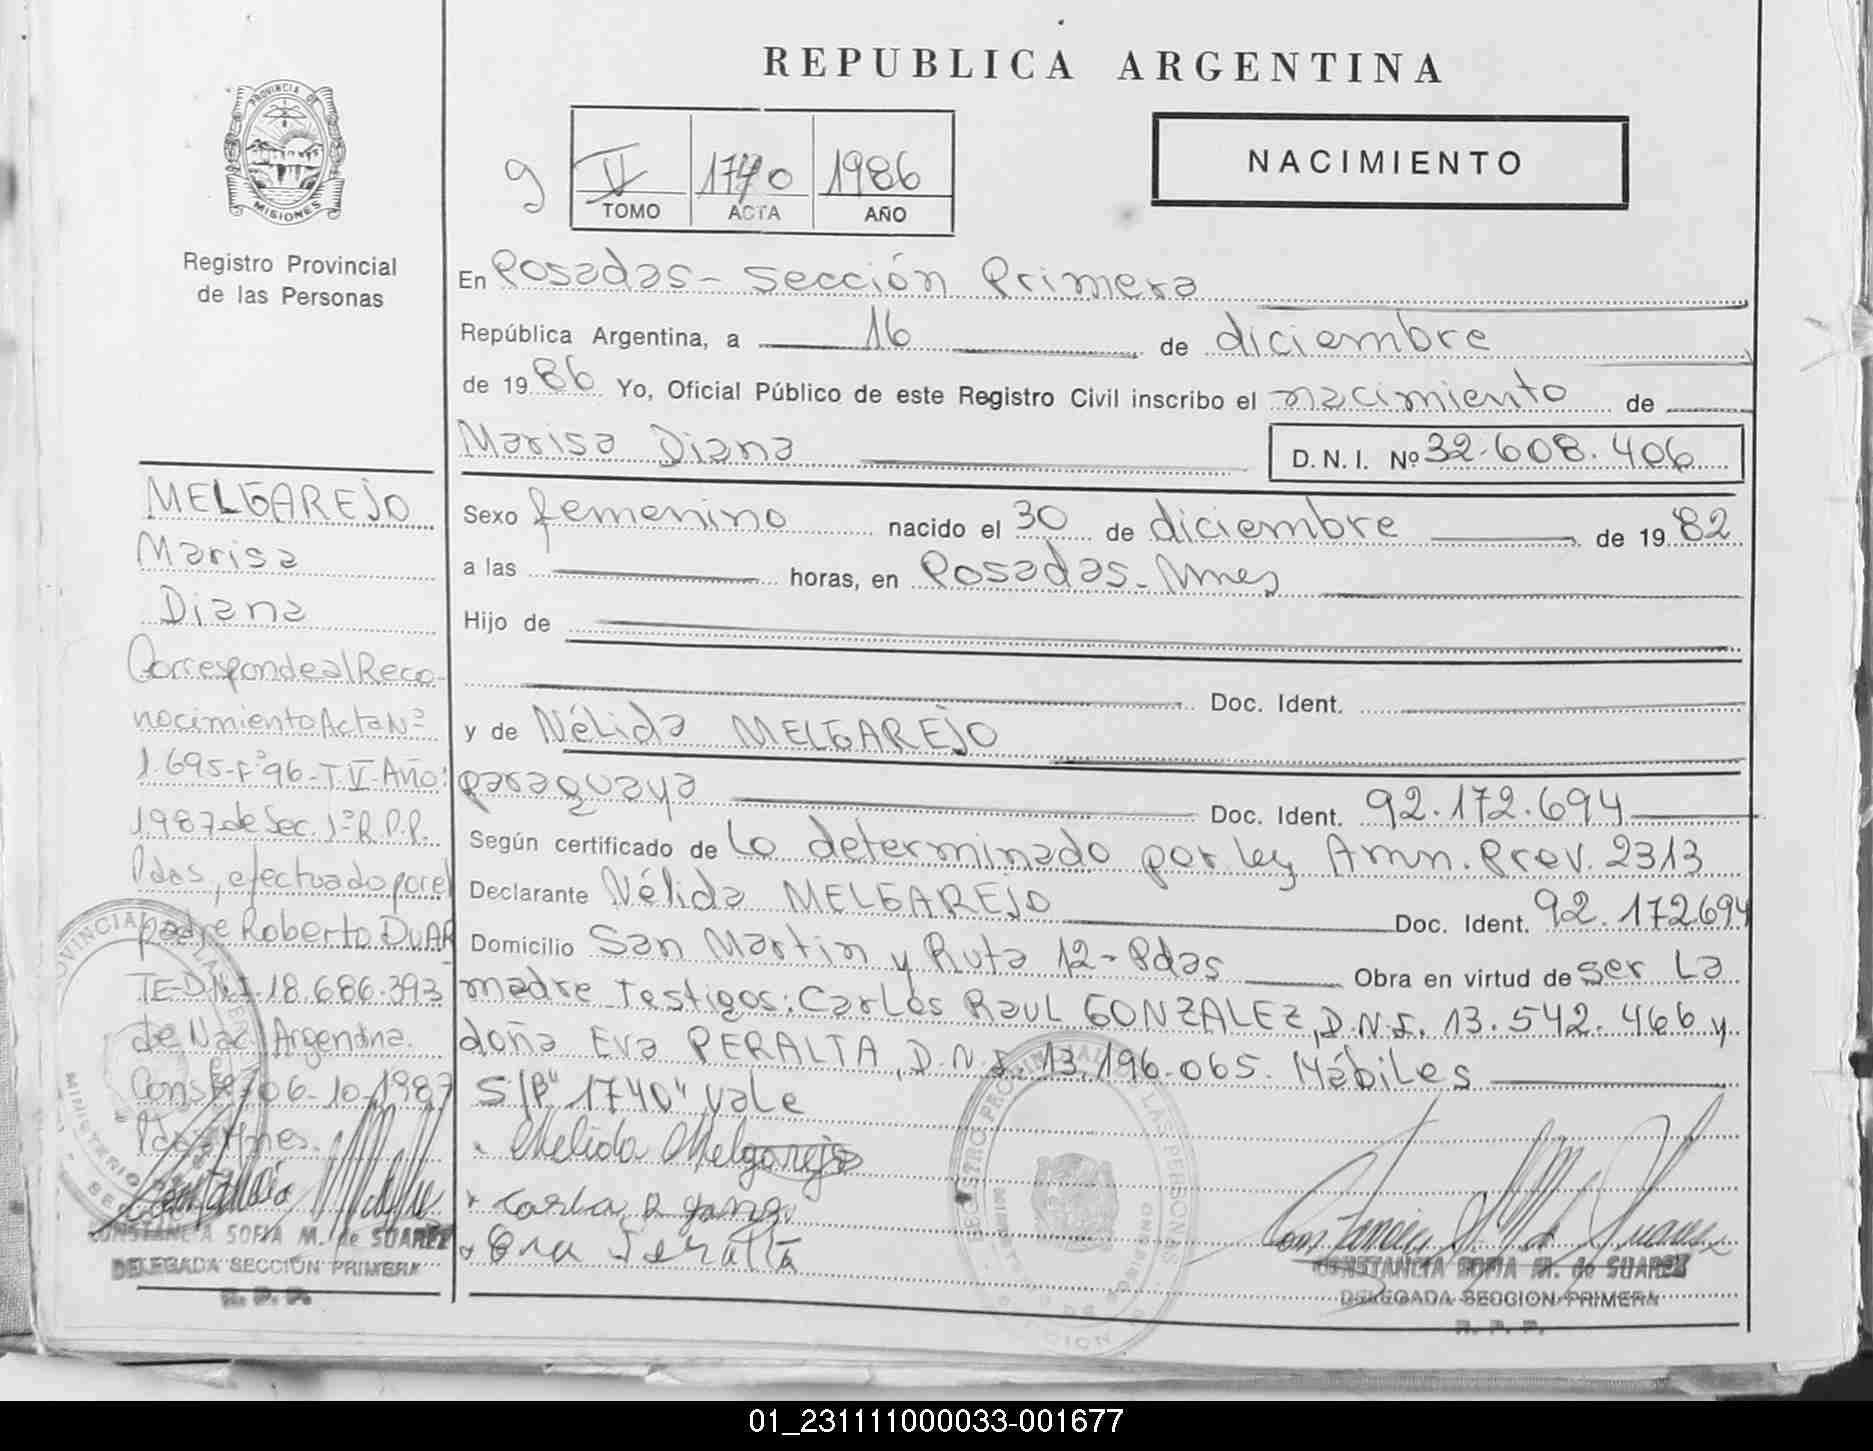 REPUBLICA ARGENTINA
PROVINCIA DE
MISIONES
Registro Provincial
de las Personas
9
V 1740 1986
TOMO ACTA AÑO
NACIMIENTO
En Posadas - Sección Primera
República Argentina, a 16 de diciembre
de 1986 Yo, Oficial Público de este Registro Civil inscribo el nacimiento de
Marisa Diana D.N.I. Nº 32.608.406
Sexo femenino nacido el 30 de diciembre de 1982
a las horas, en Posadas - Mnes
Hijo de
Doc. Ident.
y de Nélida MELGAREJO
paraguaya Doc. Ident. 92.172.694
Según certificado de Lo determinado por ley Amn. Prov. 2313
Declarante Nélida MELGAREJO Doc. Ident. 92.172694
Domicilio San Martin y Ruta 12 - Pdas Obra en virtud de ser La
madre Testigos: Carlos Raul GONZALEZ, D.N.I. 13.542.466 y
doña Eva PERALTA, D.N.I. 13.196.065. Hábiles
S/P "1740" vale
Nelida Melgarejo
Eva Peralta
CONSTANCIA SOFIA M. de SUAREZ
DELEGADA SECCION PRIMERA
R. P. P.
MELGAREJO
Marisa
Diana
Corresponde al Reco-
nocimiento Acta Nº
1.695-Fº96-T.V-Año:
1987 de Sec. 1ª R.P.P.
Pdas, efectuado por el
padre Roberto DUAR
TE-D.N.I.18.686.393
de Nac. Argentina.
Conste/ 06-10-1987
Pdas-Mnes.
CONSTANCIA SOFIA M. de SUAREZ
DELEGADA SECCIÓN PRIMERA
R. P. P.
01_231111000033-001677